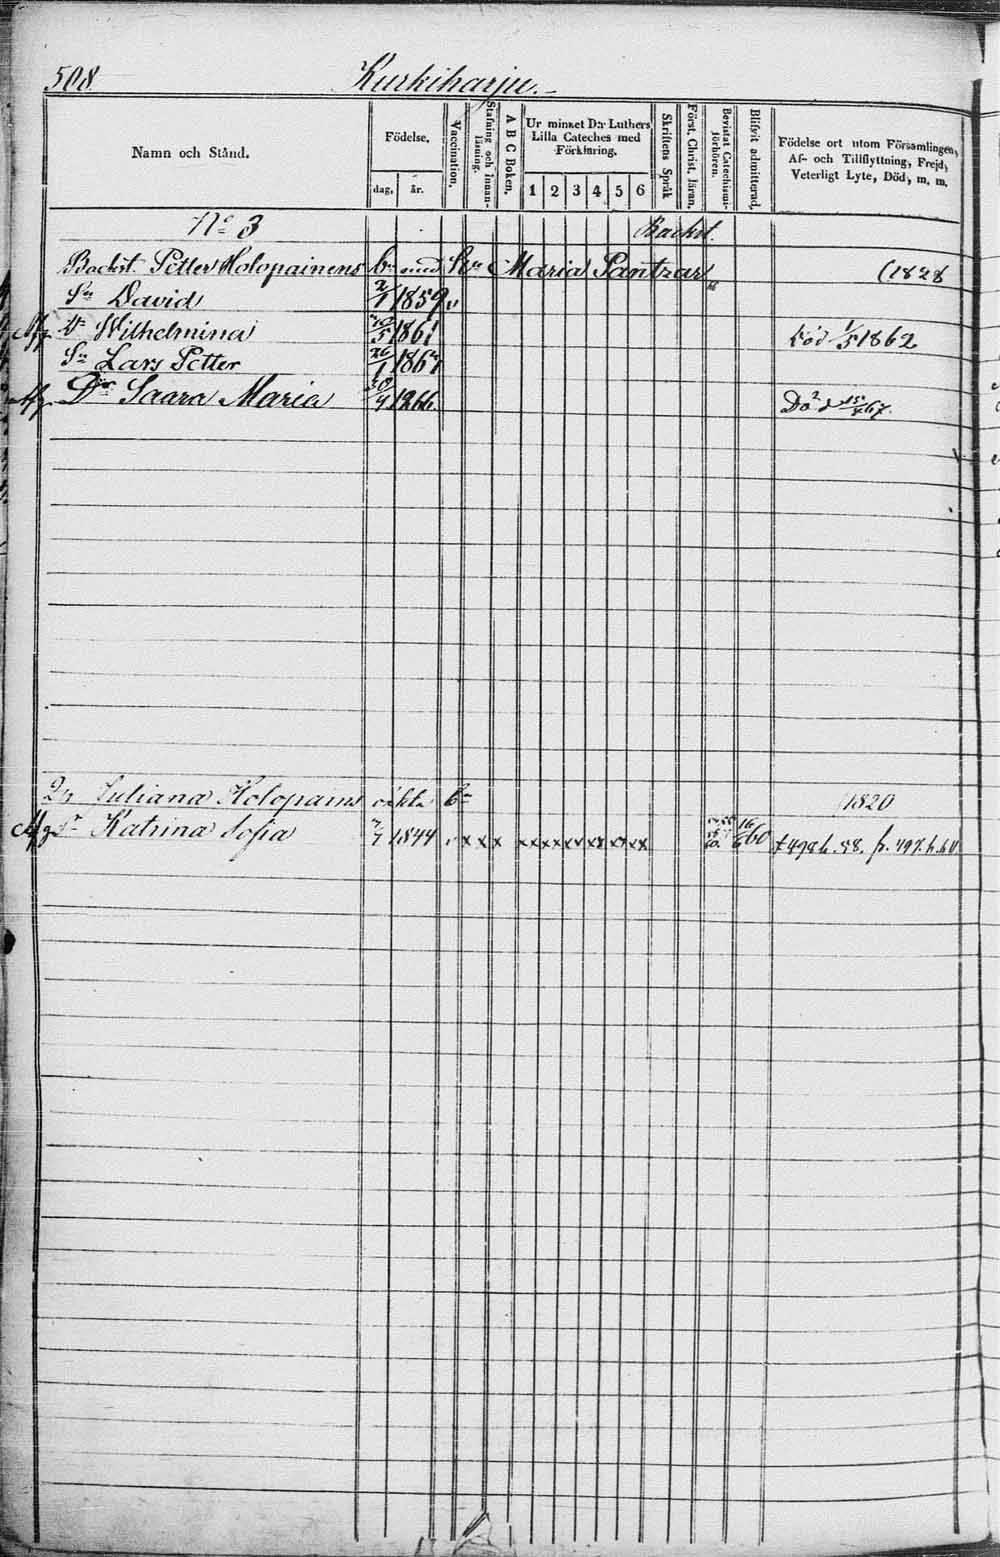 508 Kurkiharju.
Namn och Stånd. Födelse. dag, år. Vaccination. Stafning och innanläsning. A B C Boken. Ur minnet D:r Luthers Lilla Cateches med Förklaring. 1 2 3 4 5 6 Skriftens Språk Först. Christ. läran. Bevistat Catechismiförhören. Blifvit admitterad. Födelse ort utom Församlingen, Af- och Tillflyttning, Frejd, Veterligt Lyte, Död, m. m.
No 3 Backst.
Backst. Petter Holopainens bn med Hu Maria Pantzar (1828
Sn David 2/1 1859 v
Dr Wilhelmina /5 1861 Död 1/5 1862
Sn Lars Petter 26/1 1867
Dr Saara Maria 30/4 1866. Död 67.
Juliana Holopains oäkta bn 1820
Dr Katrina Sofia 7/7 1844 v x x x x x x x x x x x x x x 16/6 60 f. 498 h. 58. fr. 497. h. 60